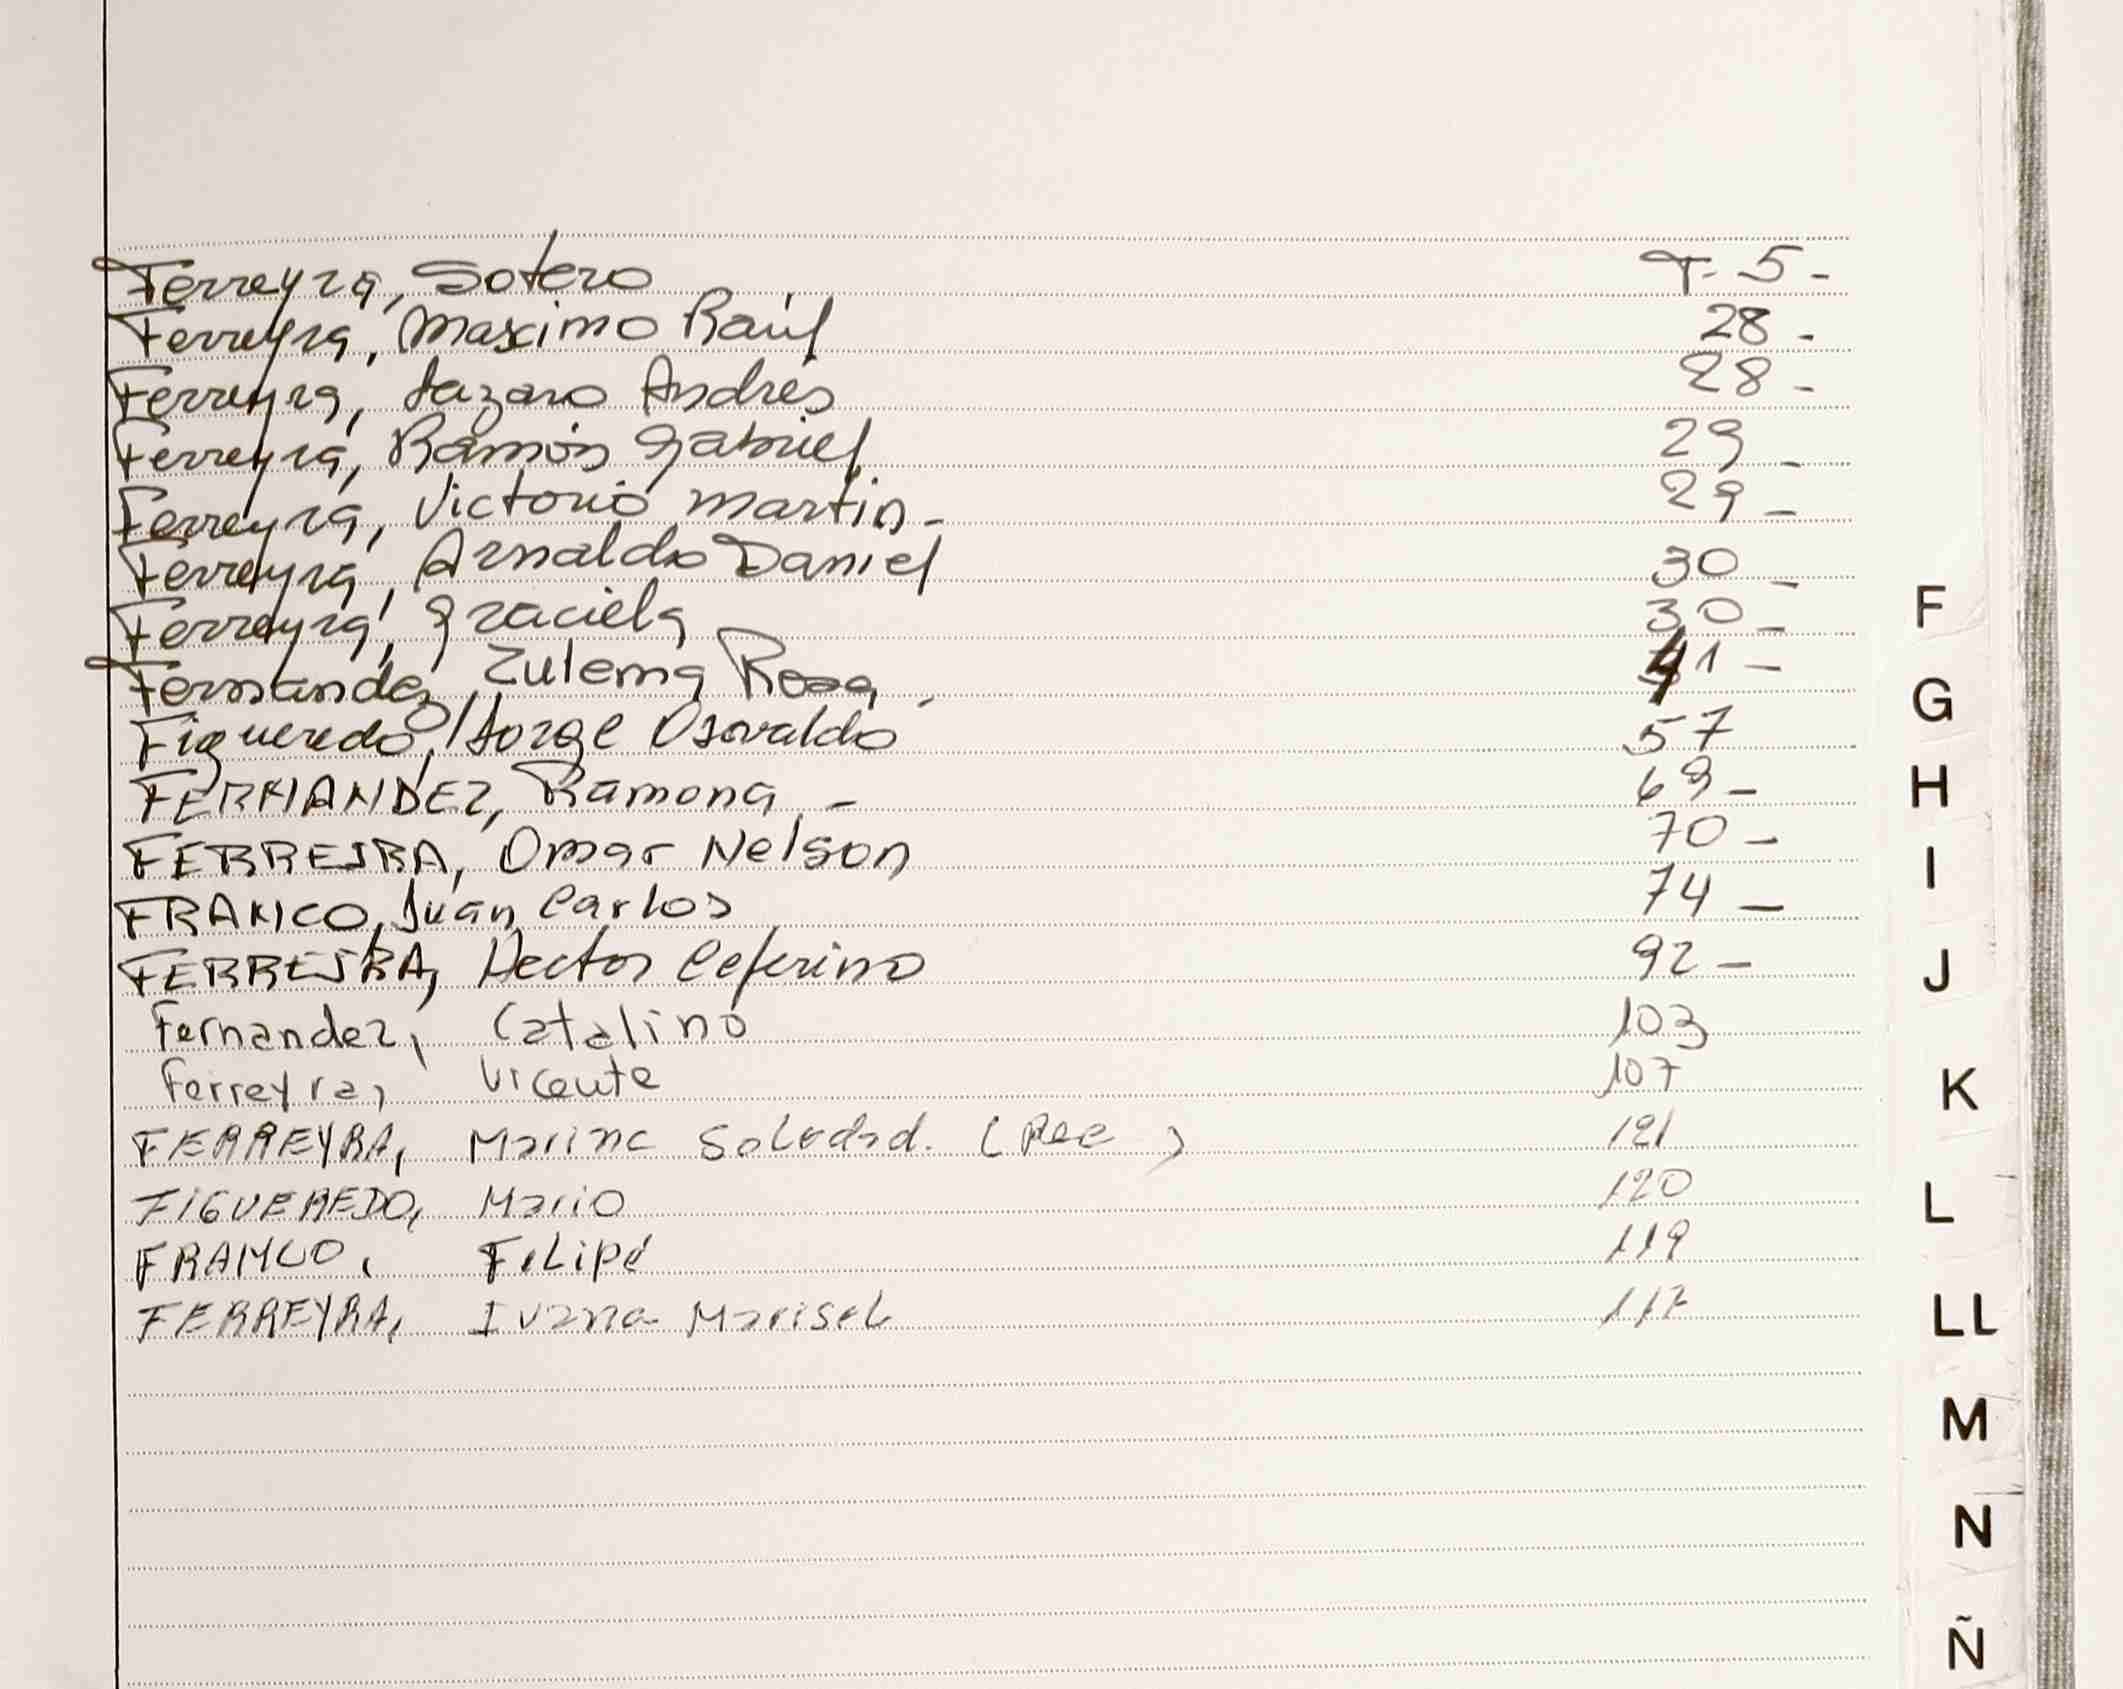 Ferreyra, Sotero T- 5-
Ferreyra, Maximo Raúl 28-
Ferreyra, Lazaro Andrés 28-
Ferreyra, Ramón Gabriel 29-
Ferreyra, Victorio Martin- 29-
Ferreyra, Arnaldo Daniel 30-
Ferreyra, Graciela 30-
Fernandez, Zulema Rosa. 41-
Figueredo, Jorge Osvaldo 57
FERNANDEZ, Ramona - 69-
FERREIRA, Omar Nelson 70-
FRANCO, Juan Carlos 74-
FERREIRA, Hector Ceferino 92-
Fernandez, Catalino 103
Ferreyra, Vicente 107
FERREYRA, Marina Soledad. (Rec ) 121
FIGUEREDO, Mario 120
FRANCO, Felipe 119
FERREYRA, Ivana Marisel 117
F
G
H
I
J
K
L
LL
M
N
Ñ